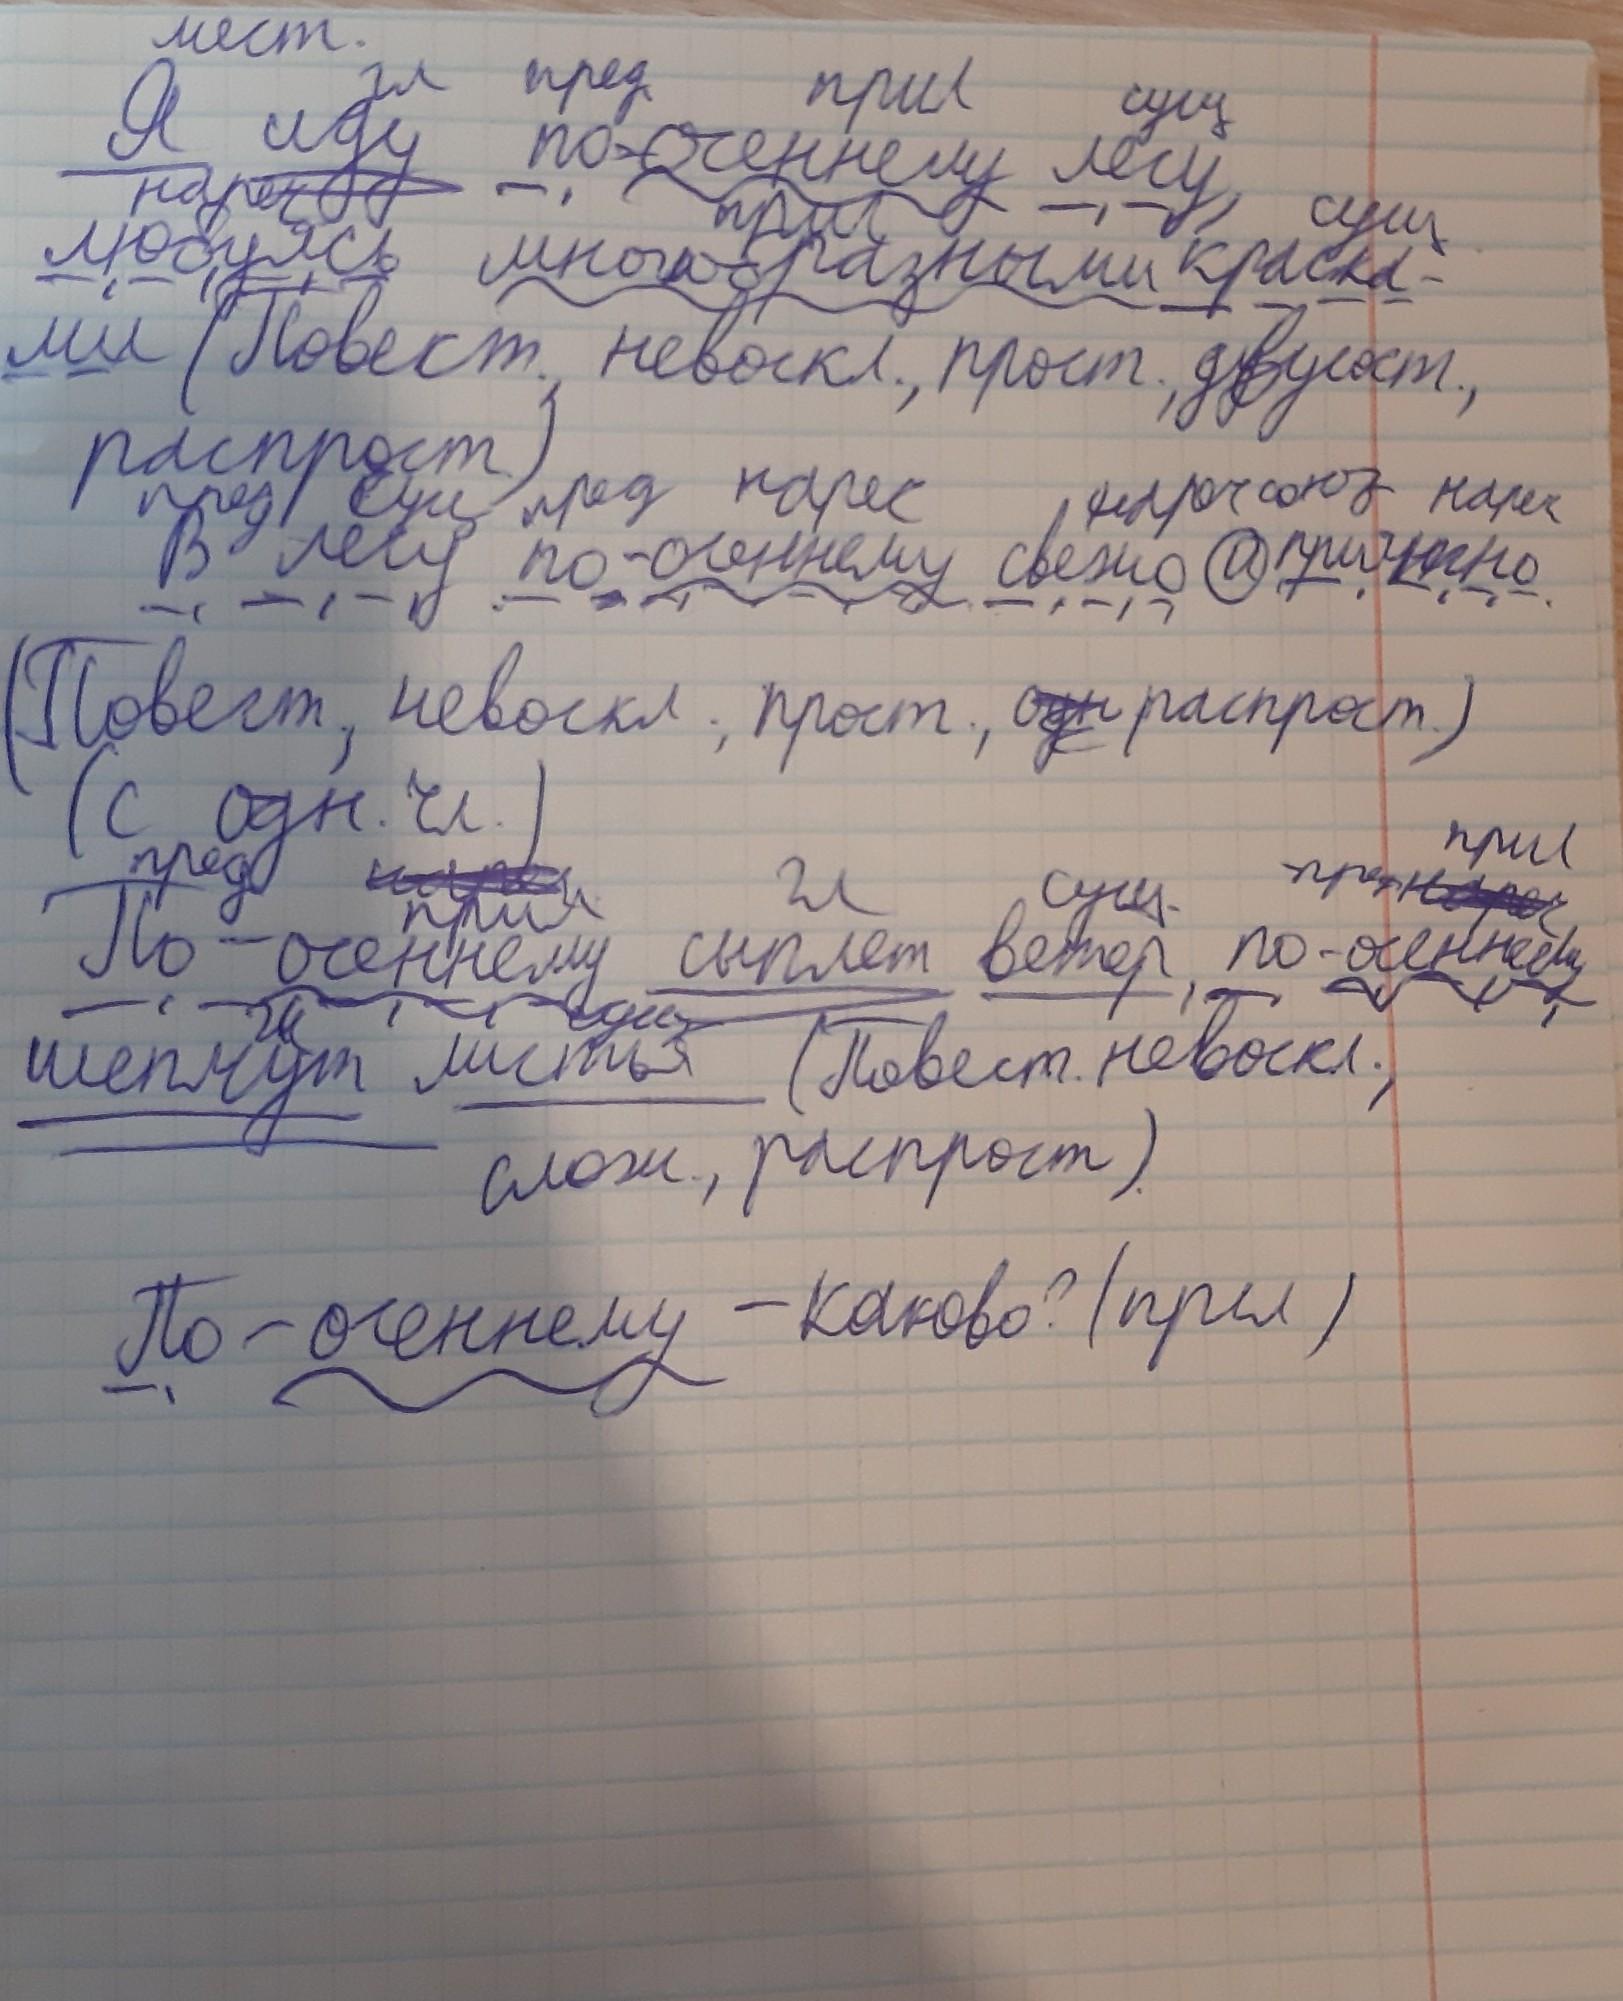 мест.
гл пред прил сущ
Я иду по-осеннему лесу,
нареч прил сущ
любуясь многообразными краска-
ми (Повест., невоскл., прост., двусост.,
распрост)
пред сущ пред нареч союз нареч
В лесу по-осеннему свежо и
(Повест., невоскл., прост., распрост.)
(с одн. чл.)
прил
пред гл сущ.
прил
По-осеннему сыплет ветер, по-осеннему
гл сущ
шепчут листья (Повест. невоскл.,
слож., распрост).
По-осеннему - каково? (прил)